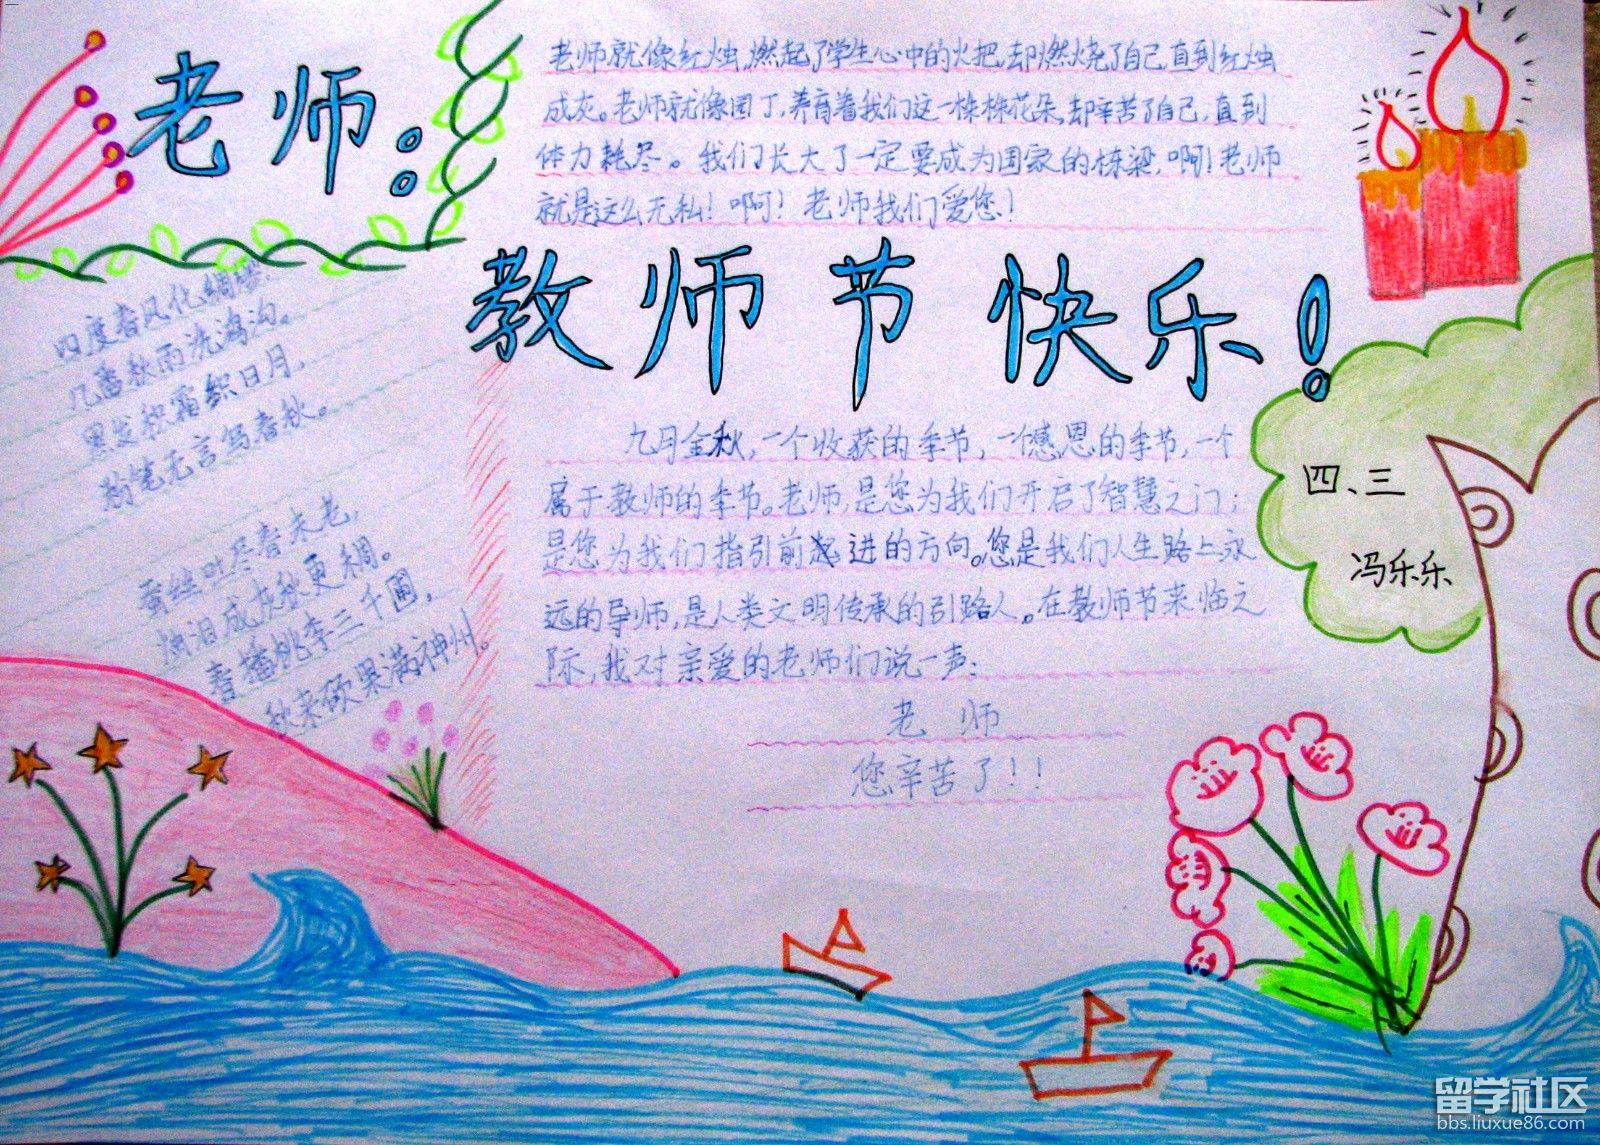 老师:
老师就像红烛,燃起了学生心中的火把,却燃烧了自己,直到红烛
成灰。老师就像园丁,养育着我们这一株株花朵,却辛苦了自己,直到
体力耗尽。我们长大了一定要成为国家的栋梁,啊!老师
就是这么无私!啊!老师我们爱您!
教师节快乐!
四度春风化绸缪,
几番秋雨洗鸿沟。
黑发积霜织日月,
粉笔无言写春秋。
蚕丝吐尽春未老,
烛泪成灰秋更稠。
春播桃李三千圃,
秋来硕果满神州。
九月金秋,一个收获的季节,一个感恩的季节,一个
属于教师的季节。老师,是您为我们开启了智慧之门;
是您为我们指引前进的方向。您是我们人生路上永
远的导师,是人类文明传承的引路人。在教师节来临之
际,我对亲爱的老师们说一声:
老师
您辛苦了!!
四、三
冯乐乐
留学社区
bbs.liuxue86.com